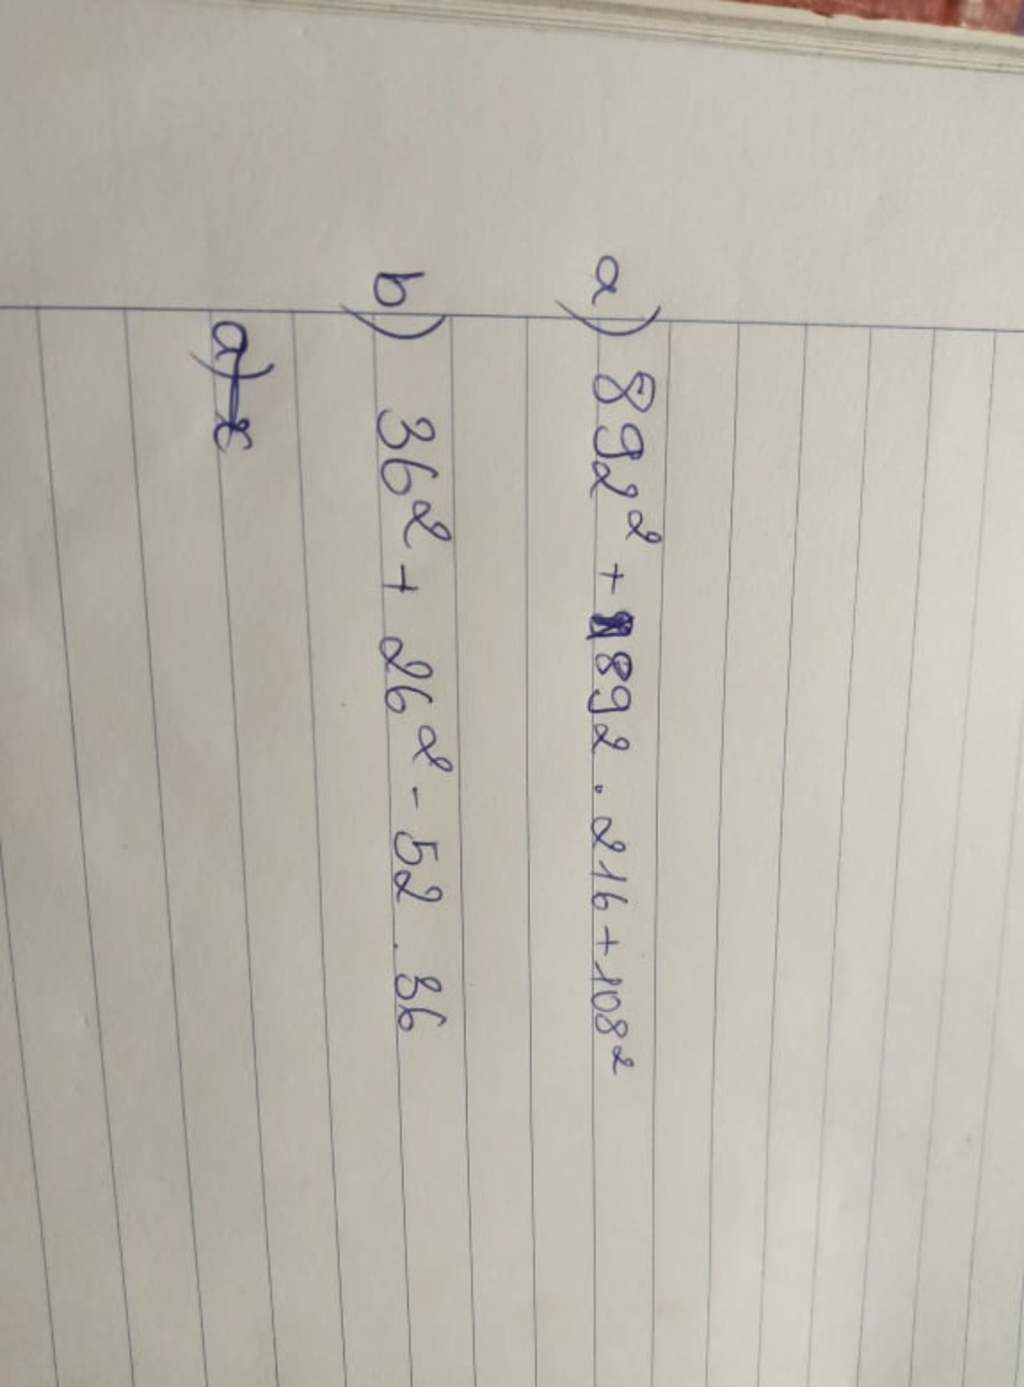 a) 892² + 892 . 216 + 108²
b) 36² + 26² - 52 . 36
a)